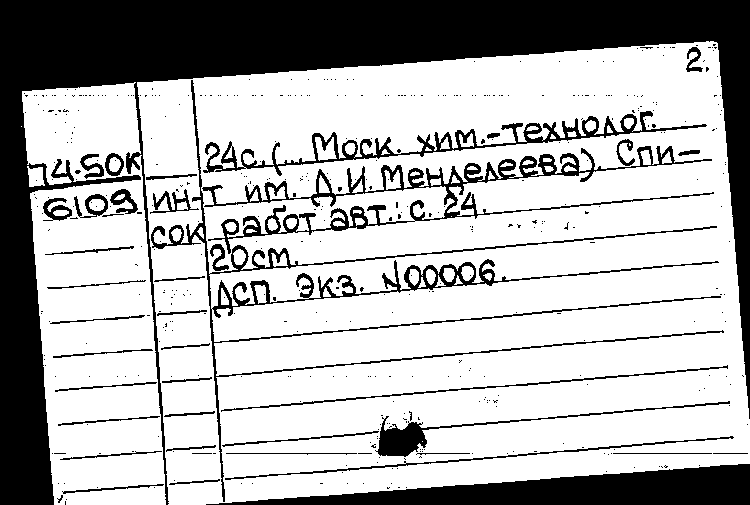 2.
24с. (... Моск. хим.-технолог.
74-50к
ин-т им. Д.И. Менделеева). Спи-
6109
сок работ авт.: с. 24.
20см.
ДСП. Экз. N00006.